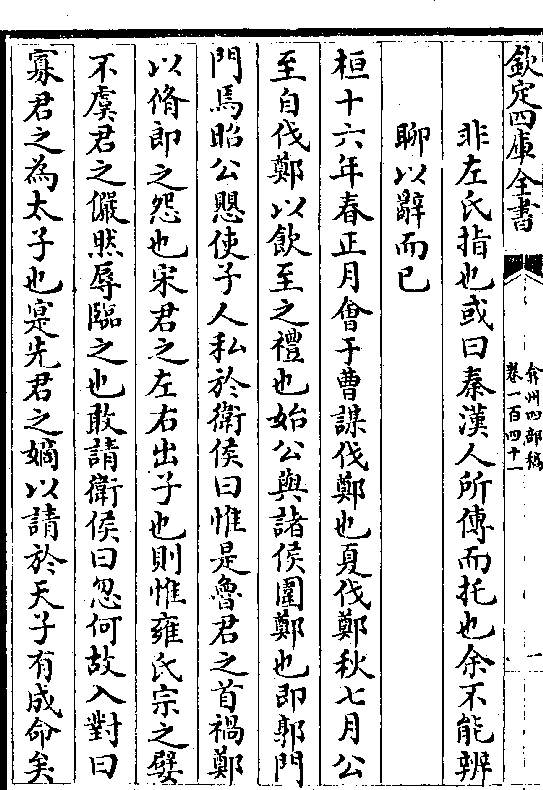 欽定四庫全書
弇州四部稿
卷一百四十一
一
非左氏指也或曰秦漢人所傳而托也余不能辨
聊以辭而已
桓十六年春正月會于曹謀伐鄭也夏伐鄭秋七月公
至自伐鄭以飲至之禮也始公與諸侯圍鄭也即郭門
門焉昭公愳使子人私於衛侯曰惟是魯君之首禍鄭
以脩郎之怨也宋君之左右出子也則惟雍氏宗之嬖
不虞君之儼然辱臨之也敢請衛侯曰忽何故入對曰
寡君之為太子也寔先君之嫡以請於天子有成命矣